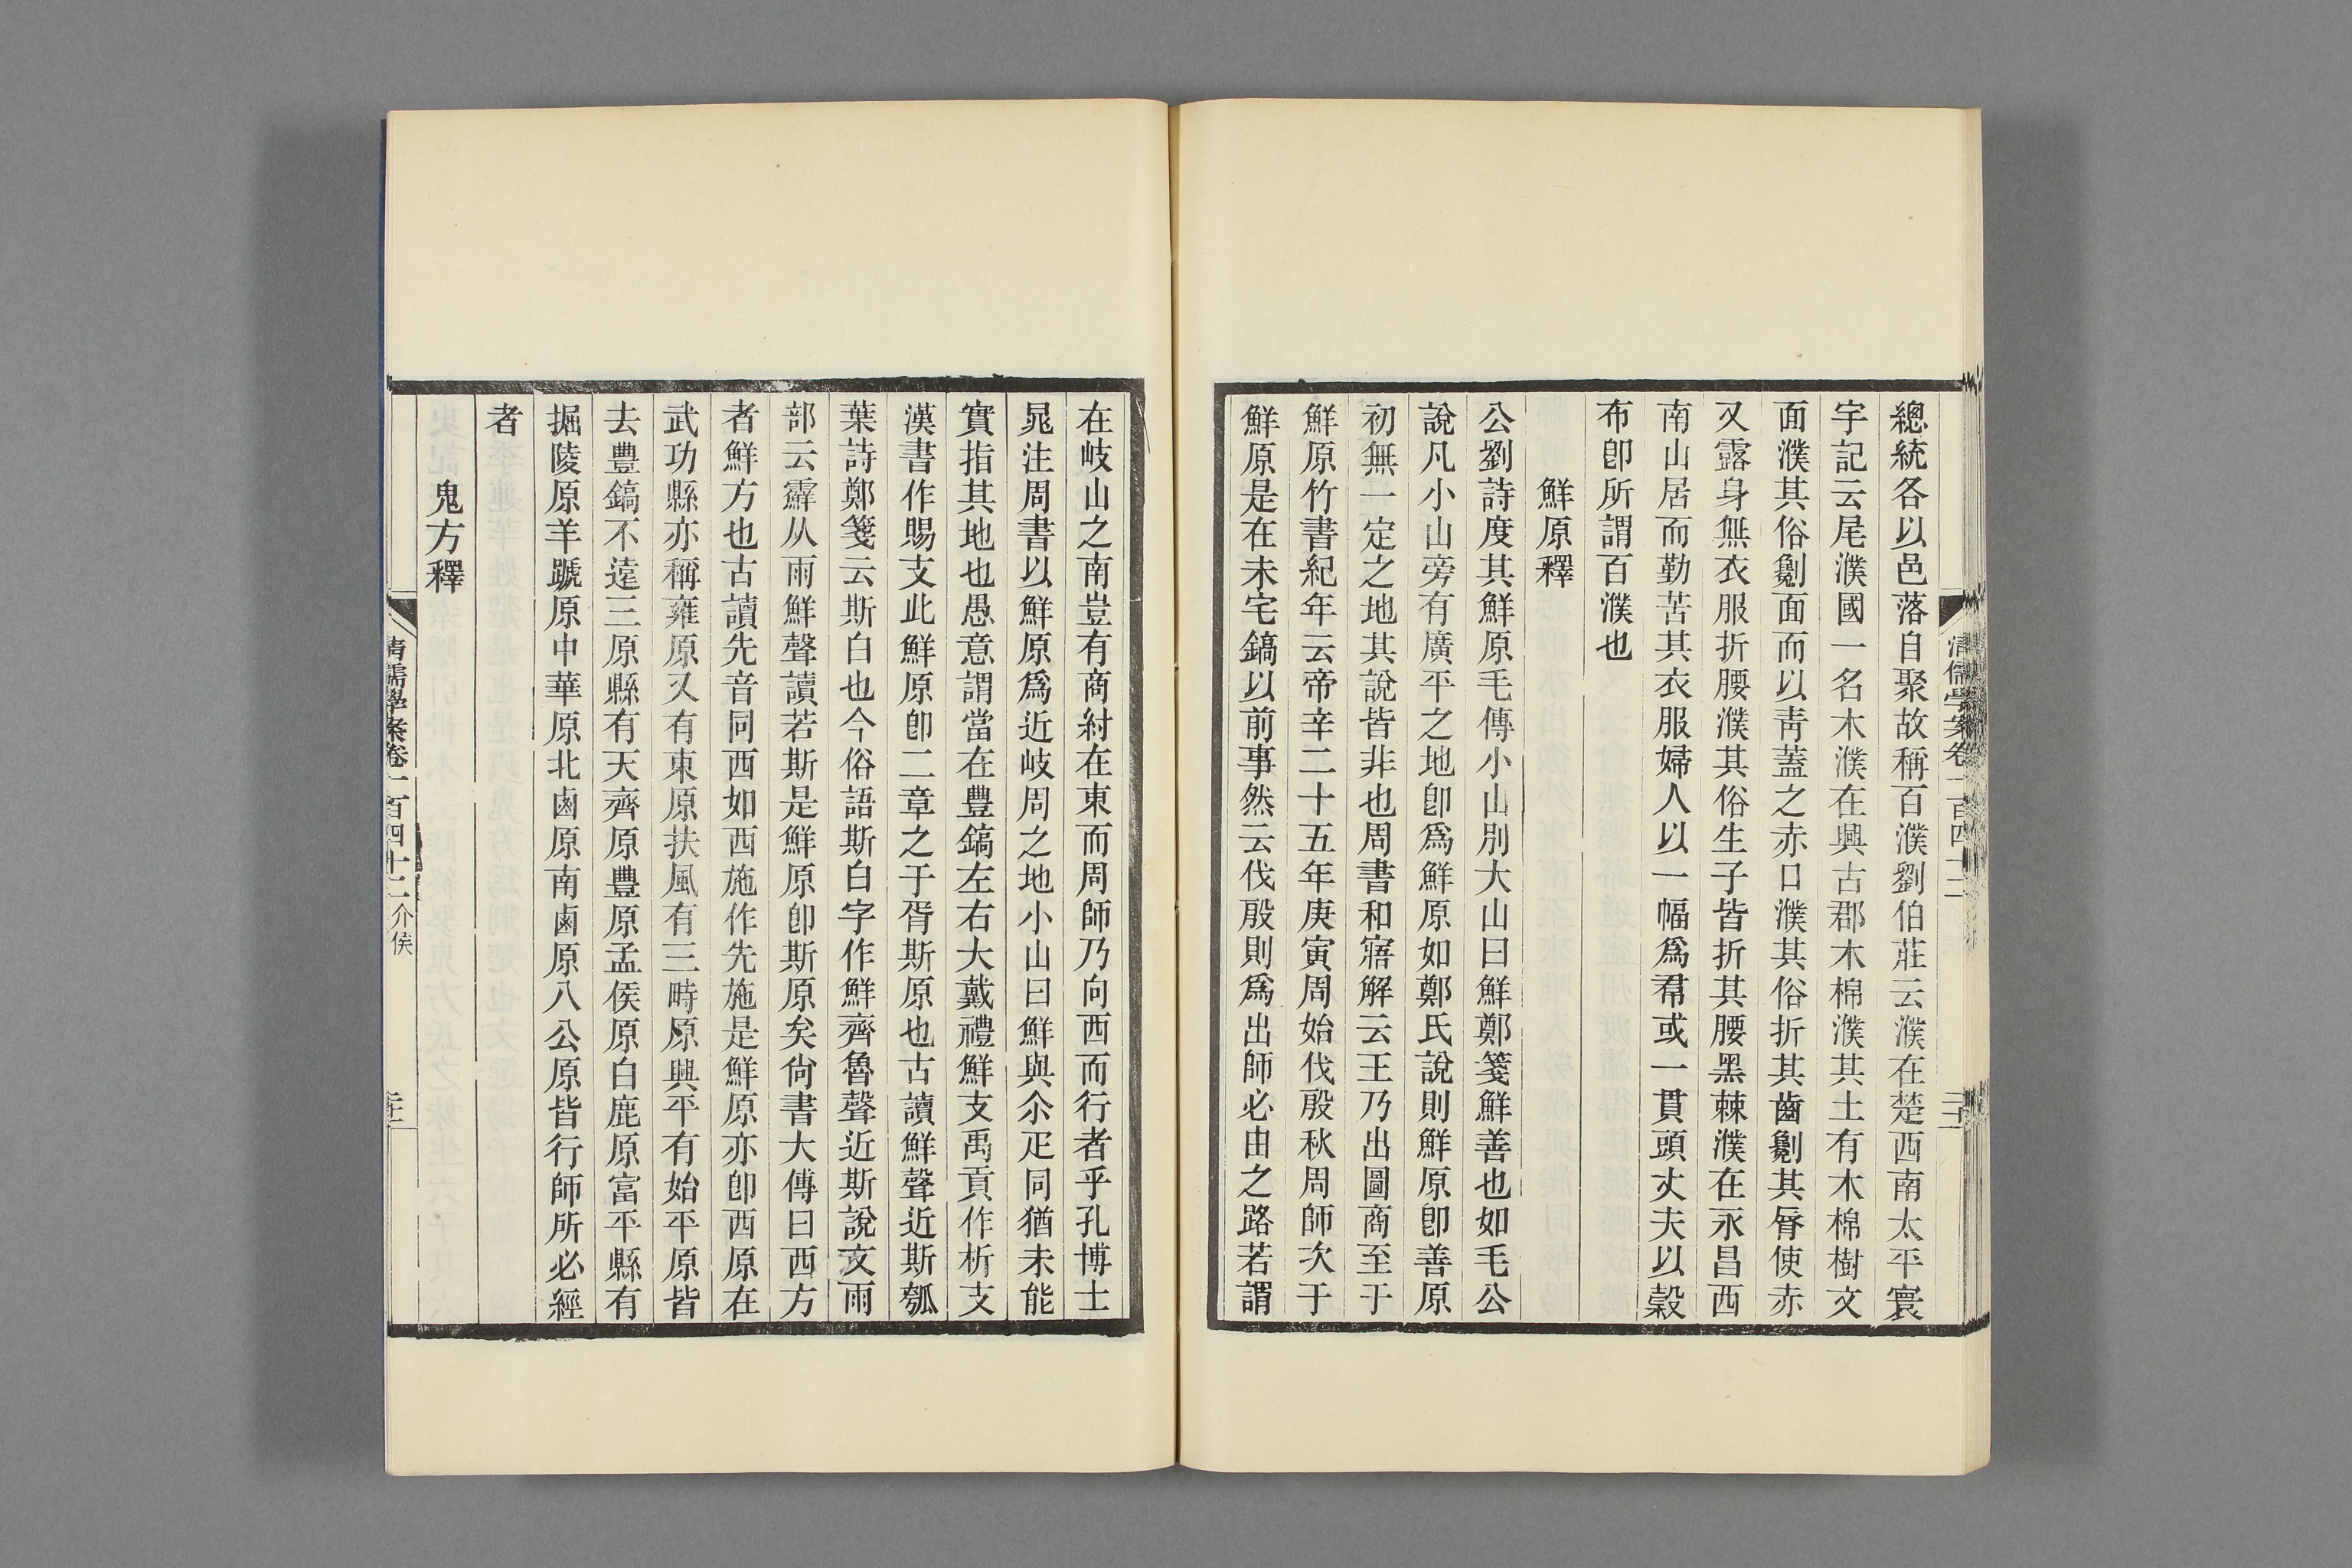 總統各以邑落自聚故稱百濮劉伯莊云濮在楚西南太平寰
宇記云尾濮國一名木濮在興古郡木棉濮其土有木棉樹文
面濮其俗劖面而以靑蓋之赤口濮其俗折其齒劖其脣使赤
又露身無衣服折腰濮其俗生子皆折其腰黑𣗥濮在永昌西
南山居而勤苦其衣服婦人以一幅爲帬或一貫頭丈夫以穀
布卽所謂百濮也
鮮原釋
公劉詩度其鮮原毛傳小山別大山曰鮮鄭箋鮮善也如毛公
說凡小山旁有廣平之地卽爲鮮原如鄭氏說則鮮原卽善原
初無一定之地其說皆非也周書和寤解云王乃出圖商至于
鮮原竹書紀年云帝辛二十五年庚寅周始伐殷秋周師次于
鮮原是在未宅鎬以前事然云伐殷則爲出師必由之路若謂
清儒學案卷一百四十二
在岐山之南豈有商紂在東而周師乃向西而行者乎孔博士
晁注周書以鮮原爲近岐周之地小山曰鮮與尒疋同猶未能
實指其地也愚意謂當在豐鎬左右大戴禮鮮支禹貢作析支
漢書作賜支此鮮原卽二章之于胥斯原也古讀鮮聲近斯瓠
葉詩鄭箋云斯白也今俗語斯白字作鮮齊魯聲近斯說文雨
部云霹从雨鮮聲讀若斯是鮮原卽斯原矣尙書大傳曰西方
者鮮方也古讀先音同西如西施作先施是鮮原亦卽西原在
武功縣亦稱雍原又有東原扶風有三畤原興平有始平原皆
去豐鎬不遠三原縣有天齊原豐原孟侯原白鹿原富平縣有
掘陵原羊蹏原中華原北鹵原南鹵原八公原皆行師所必經
者
鬼方釋
清儒學案卷一百四十二 介侯